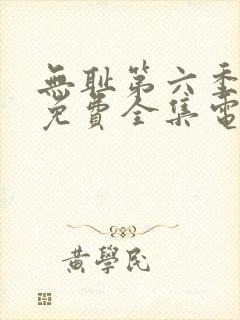 無耻第六季
免費全集電
黄學民